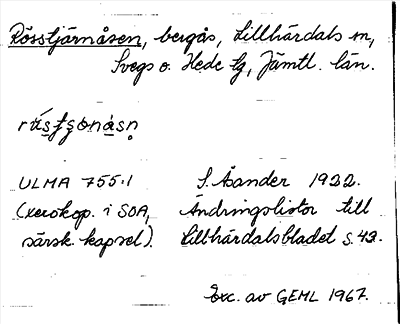 Rösstjärnåsen, bergås, Lillhärdals sn,
Svegs o. Hede tg, Jämtl. län.
ULMA 755:1 S. Åsander 1922.
(xerokop. i SOA, Ändringslistor till
särsk. kapsel). Lillhärdalsbladet s. 43.
Exc. av GEML 1967.